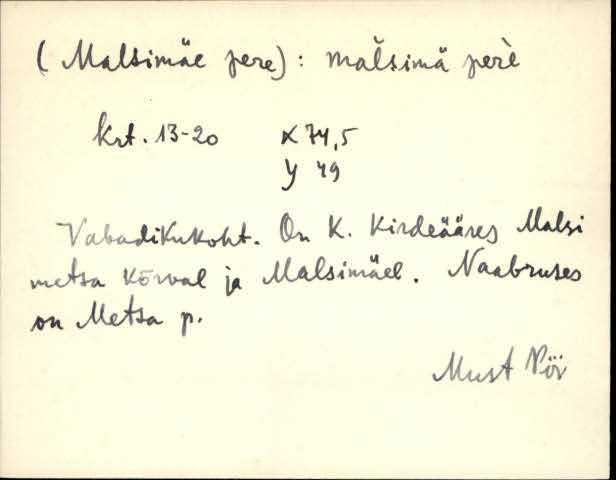 (Malsimäe pere): mälsimä perè
krt. 13-20 X 74,5
Y 49
Vabadikukoht. On K. Kirdeääres Malsi
metsa kõrval ja Malsimäel. Naabruses
on Metsa p.
Must